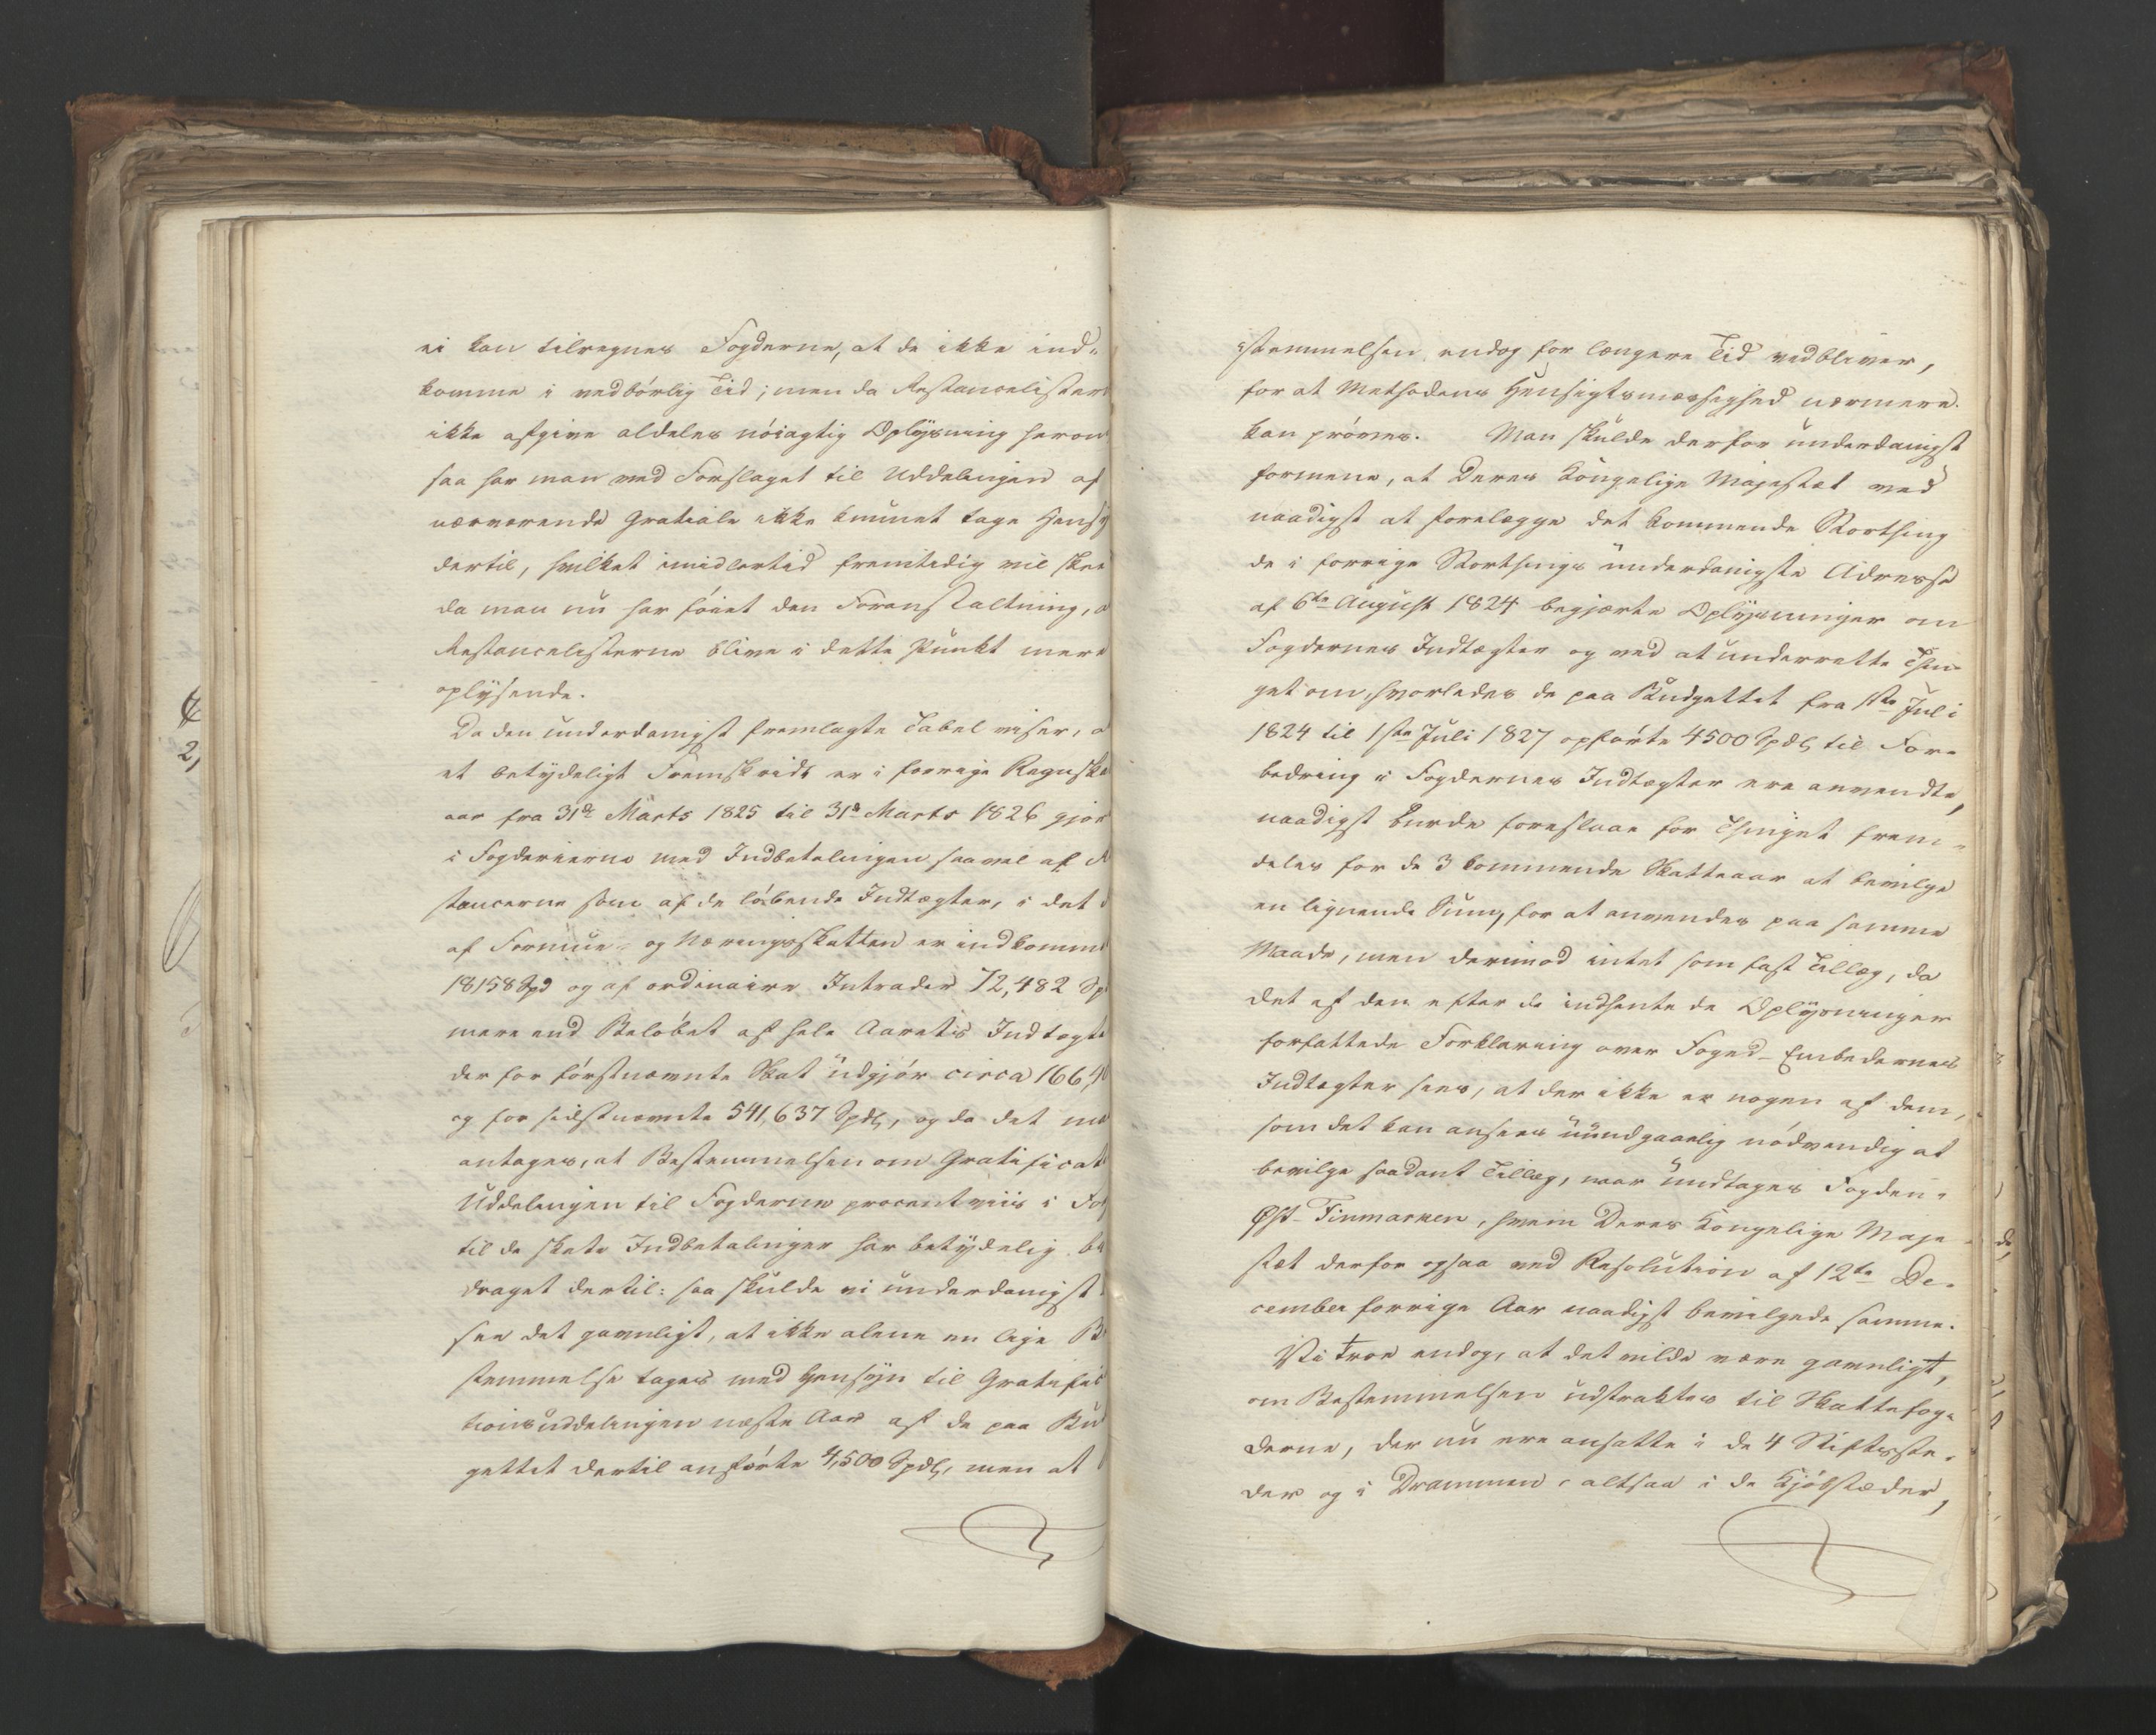 ei kan tilregnes Fogderne, at de ikke ind-
komme i vedbörlig Tid; men da Restancelister
ikke afgive aldeles nöiagtig Oplysning herom
saa har man ved Forslaget til Uddelingen af
nærværende Gratiale ikke kunnet tage Hensy
dertil, hvilket imidlertid fremtidig vil skee
da man nu har föiet den Foranstaltning, a
Restancelisterne blive i dette Punkt mere
oplysende.
Da den underdanigst fremlagte Tabel viser, a
et betydeligt Fremskridt er i forrige Regnska
aar fra 31te Marts 1825 til 31te Marts 1826 gjor
i Fogderierne med Indbetalingen saavel af R
stancerne som af de löbende Indtægter, i det
af Formue- og Næringsskatten er indkomme
18158 Spd og af ordinaire Intrader 72,482 Sp
mere end Belöbet af hele Aarets Indtægt
der for förstnævnte Skat udgjör circa 166,
og for sidstnævnte 541,637 Spdl, og da det maa
antages, at Bestemmelsen om Gratificat
Uddelingen til Fogderne procentviis i For
til de skete Indbetalinger har betydelig bi
draget dertil: saa skulde vi underdanigst
see det gavnligt, at ikke alene en lige B
stemmelse tages med Hensyn til Gratifica
tionsuddelingen næste Aar af de paa Bud
gettet dertil anförte 4,500 Spdl, men at
stemmelsen endog for længere Tid vedbliver,
for at Methodens Hensigtsmæssighed nærmere
kan pröves. Man skulde derfor underdanigst
formene, at Deres Kongelige Majestæt ved
naadigst at forelægge det kommende Storthing
de i forrige Storthings underdanigste Adresse
af 6te August 1824 begjærte Oplysninger om
Fogdernes Indtægter og ved at underrette Thin-
get om, hvorledes de paa Budgettet fra 1ste Juli
1824 til 1ste Juli 1827 opförte 4500 Spdl til For-
bedring i Fogdernes Indtægter ere anvendte,
naadigst burde foreslaae for Thinget frem-
deles for de 3 kommende Skatteaar at bevilge
en lignende Sum, for at anvendes paa samme
Maade, men derimod intet som fast Tillæg, da
det af den efter de indhentede Oplysninger
forfattede Forklaring over Foged-Embedernes
Indtægter sees, at der ikke er nogen af dem,
som det kan ansees uundgaaelig nödvendig at
bevilge saadant Tillæg, naar undtages Fogden i
Øst-Finmarken, hvem Deres Kongelige Maje-
stæt derfor ogsaa ved Resolution af 12te De-
cember forrige Aar naadigst bevilgede samme.
Vi troe endog, at det vilde være gavnligt,
om Bestemmelsen udstraktes til Skattefog-
derne, der nu ere ansatte i de 4 Stiftsstæ-
der og i Drammen, altsaa i de Kjöbstæder,